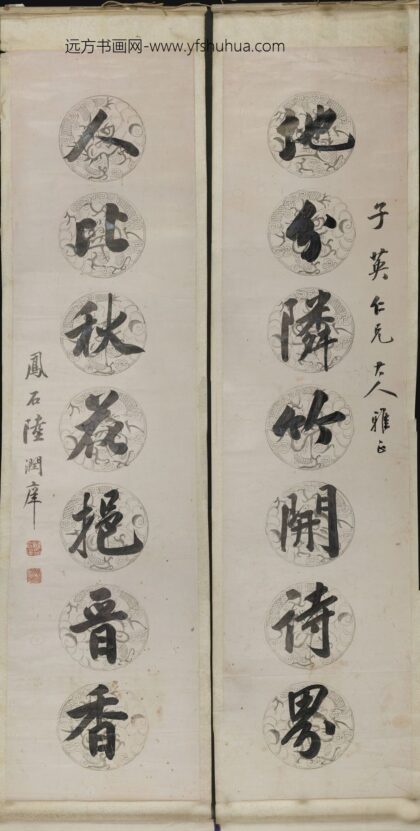 远方书画网-www.yfshuhua.com
子英仁兄大人雅正
地分隣竹開詩界
人比秋花挹晋香
鳳石陸潤庠